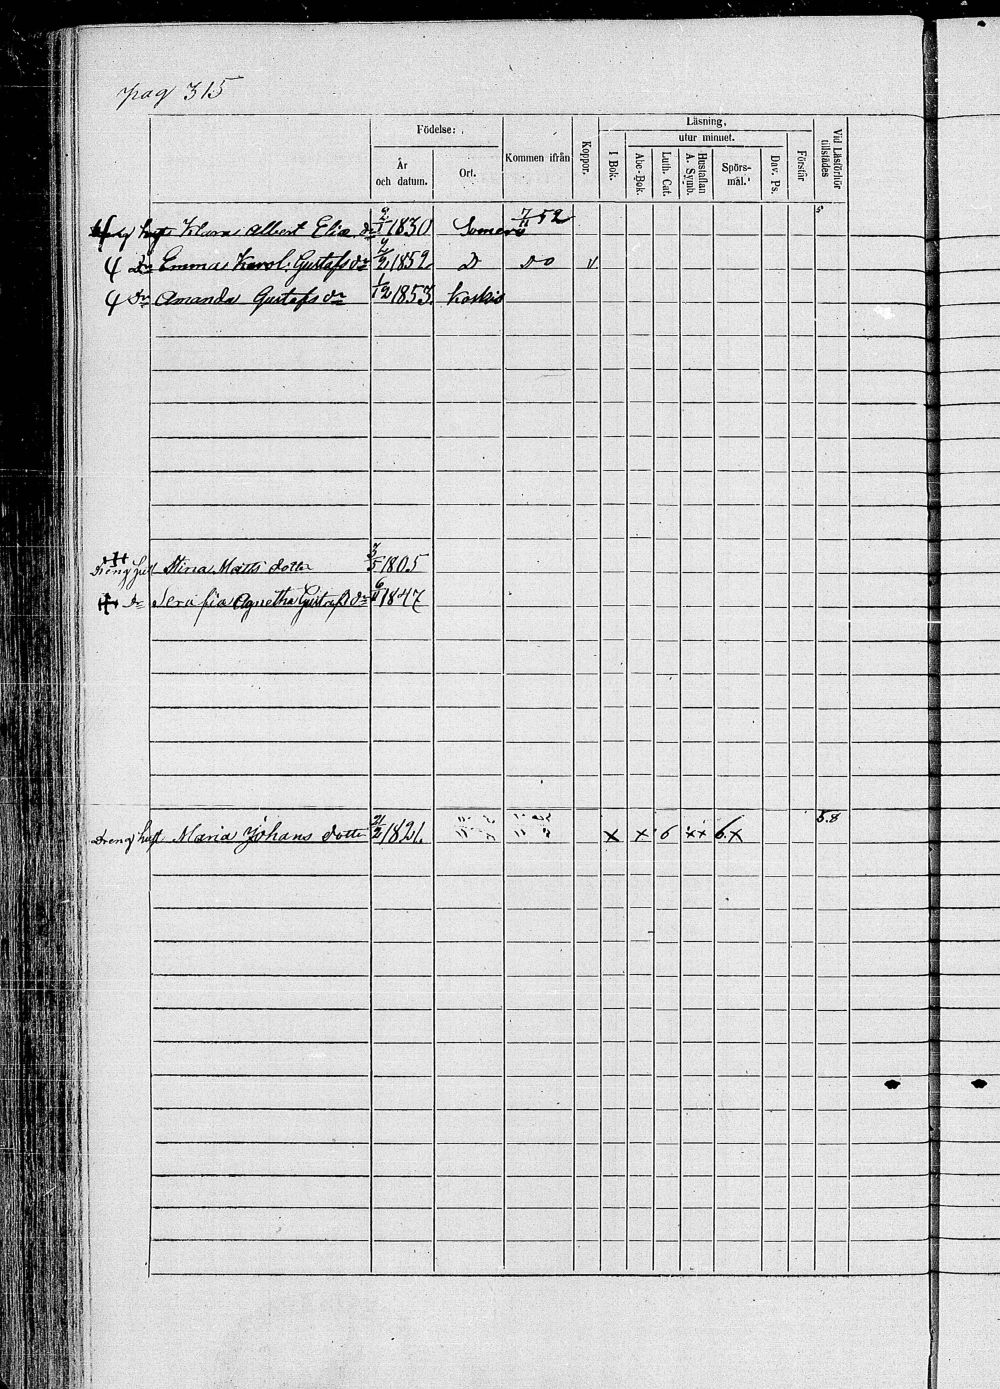 pag 315
Födelse:
År och datum.
Ort.
Kommen ifrån
Koppor.
Läsning,
I Bok.
utur minnet.
Abc-Bok.
Luth. Cat.
Hustaflan A. Symb.
Spörsmål.
Dav. Ps.
Förstår
Vid Läsförhör tillstädes
Albert Elia dr 2/1 1830 Somero 7/11 52 5
4 Dr Emma Karol: Gustafs dr 1852 D Do v
4 Dr Amanda Gustafs dr 1/12 1853 Koskis
Dreng hust Stina Matts dotter 3/5 1805
Dr Serafia Agnetha Gustafs dr 6/11 1847
5.8
Dreng hust Maria Johans dotter 21/2 1821. x x 6 xx 6.x